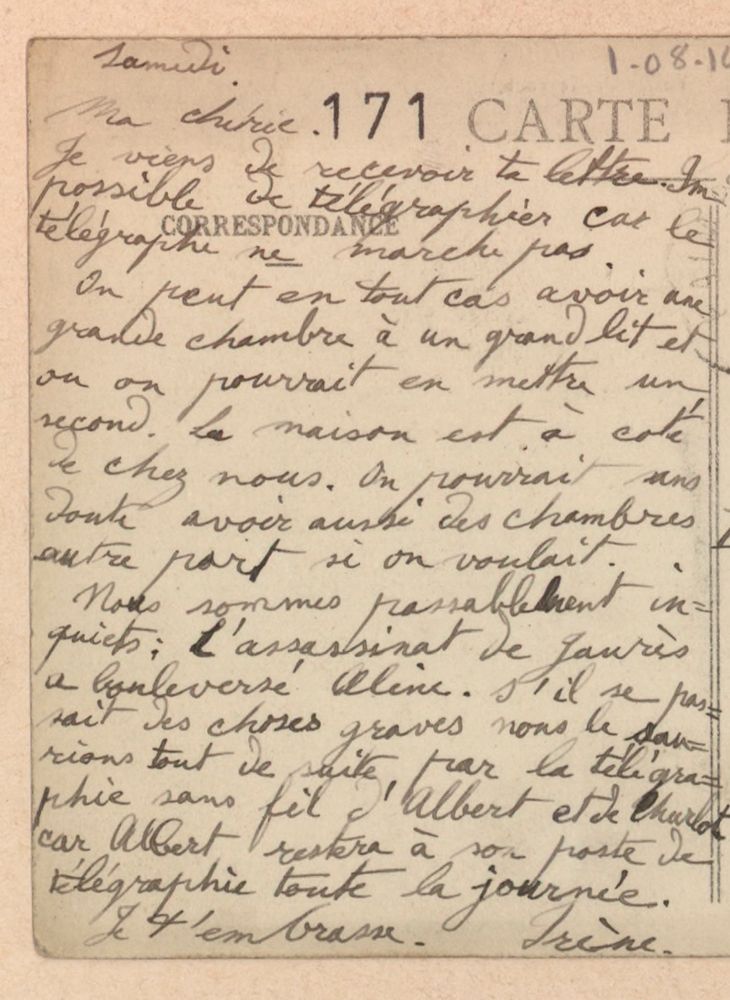 Samedi.
1-08-14
Ma chérie.
171 CARTE
Je viens de recevoir ta lettre. Im-
possible de télégraphier car le
CORRESPONDANCE
télégraphe ne marche pas.
On peut en tout cas avoir une
grande chambre à un grand lit et
ou on pourrait en mettre un
second. La maison est à coté
de chez nous. On pourrait sans
doute avoir aussi des chambres
autre part si on voulait.
Nous sommes passablement in=
quiets; L'assassinat de Jaurès
a bouleversé Aline. S'il se pas=
sait des choses graves nous le sau=
rions tout de suite par la télégra=
phie sans fil d'Albert et de Charlot
car Albert restera à son poste de
télégraphie toute la journée.
Je t'embrasse. Irène.